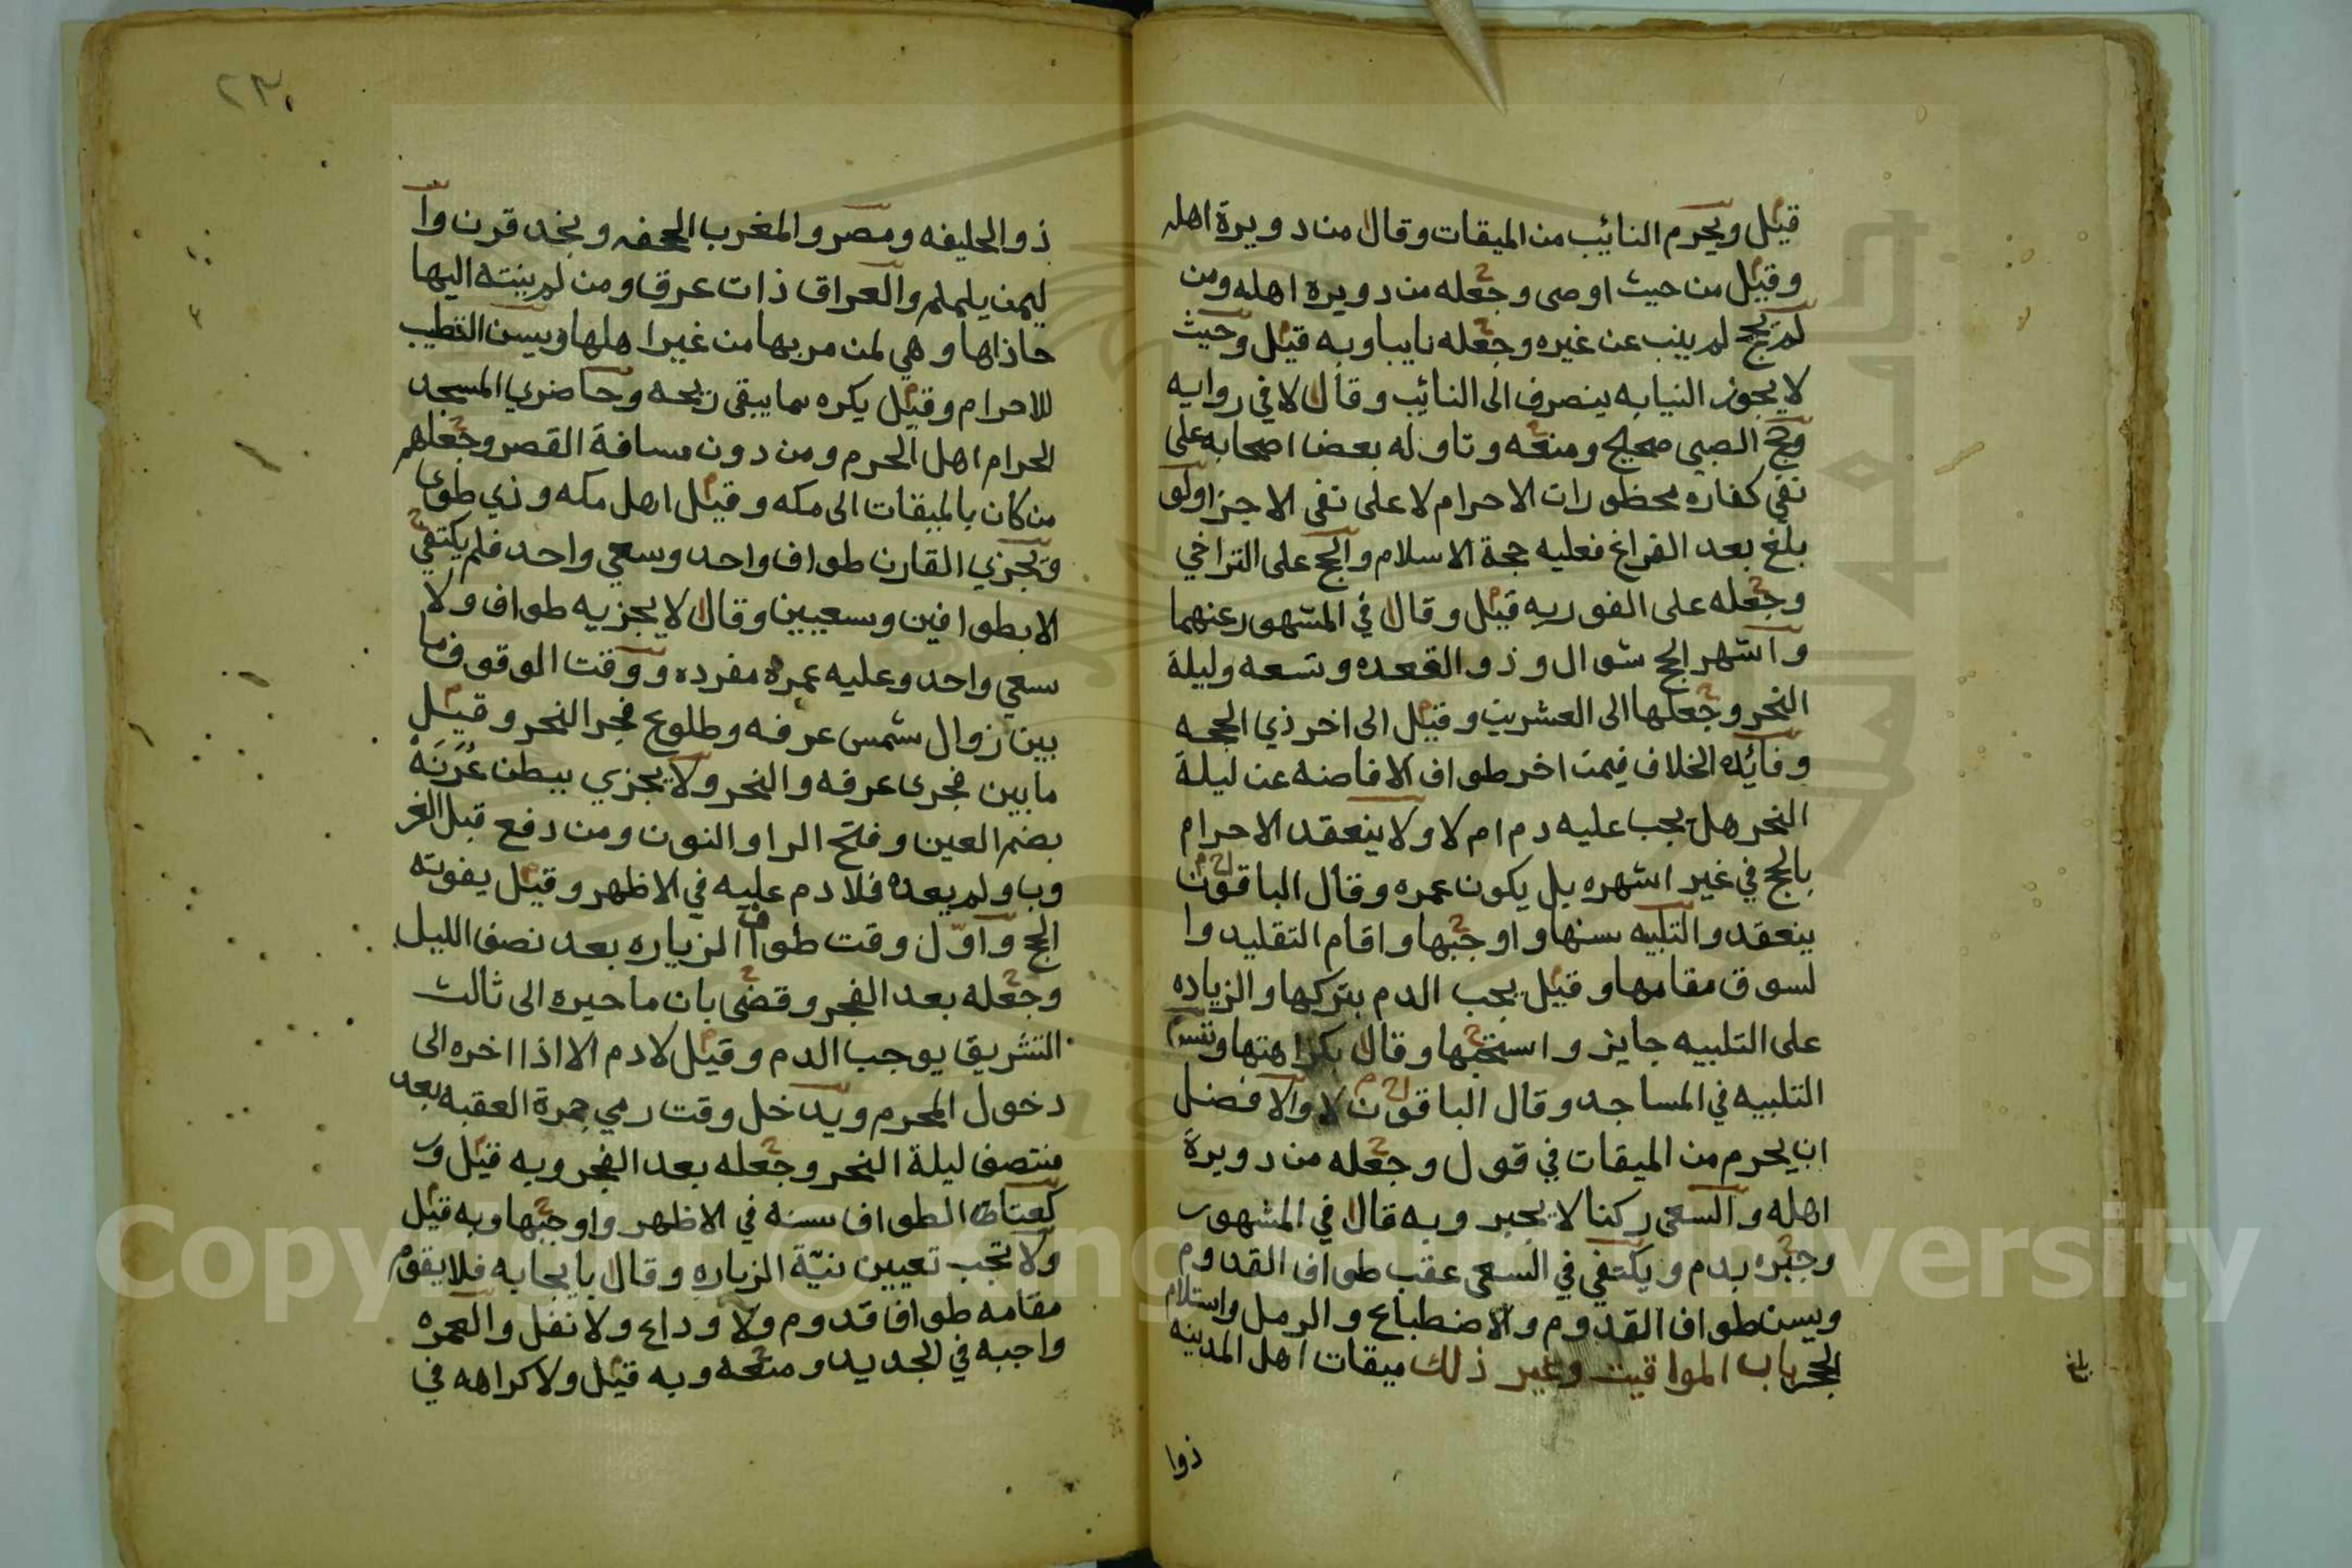 قيل ويحرم النائيب من الميقات وقال من دويرة اهله
وقيل من حيث اوصى وجعله من دويرة اهله ومن
لم يحج لم ينب عن غيره وجعله نايبا وبه قيل وحيث
لا يجوز النيابه ينصرف الى النائيب وقال لا في روايه
وحج الصبي صحيح ومنعه وتاوله بعض اصحابه على
نفي كفاره محظورات الاحرام لا على نفي الاجزا ولو
بلغ بعد الفراغ فعليه حجة الاسلام والحج على التراخي
وجعله على الفور وبه قيل وقال في المشهور عنهما
واشهر الحج شوال وذو القعده وتسعه وليلة
النحر وجعلها الى العشرين وقيل الى اخر ذي الحجه
وفائده الخلاف فيمن اخر طواف الافاضه عن ليلة
النحر هل يجب عليه دم ام لا ولا ينعقد الاحرام
بالحج في غير اشهره بل يكون عمره وقال الباقون
ينعقد والتلبيه سنها واوجبها واقام التقليد وا
لسوق مقامها وقيل يجب الدم بتركها والزياده
على التلبيه جايز واستحبها وقال بكراهتها وتسن
التلبيه في المساجد وقال الباقون لا والافضل
ان يحرم من الميقات في قول وجعله من دويرة
اهله والسعي ركنا لا يجبر وبه قال في المشهور
وجبره بدم ويكتفي في السعي عقب طواف القدوم
ويسن طواف القدوم والاضطباع والرمل واستلام
الحجر باب المواقيت وغير ذلك ميقات اهل المدينه
ذوا
بلغ
٢٣٠
ذو الحليفه ومصر والمغرب الجحفه وبنجد قرن وا
ليمن يلملم والعراق ذات عرق ومن لم ينته اليها
حاذاها وهي لمن مر بها من غير اهلها ويسن التطيب
للاحرام وقيل يكره بما يبقى ريحه وحاضري المسجد
الحرام اهل الحرم ومن دون مسافة القصر وجعلهم
من كان بالميقات الى مكه وقيل اهل مكه وذي طوى
ويجزي القارن طواف واحد وسعي واحد فلم يكتفي
الا بطوافين وسعيين وقال لا يجزيه طواف ولا
سعي واحد وعليه عمره مفرده ووقت الوقوف ما
بين زوال شمس عرفه وطلوع فجر النحر وقيل
ما بين فجرى عرفه والنحر ولا يجزي ببطن عُرَنَةْ
بضم العين وفتح الرا والنون ومن دفع قبل الغر
وب ولم يعده فلا دم عليه في الاظهر وقيل يفوته
الحج واول وقت طواف الزياره بعد نصف الليل
وجعله بعد الفجر وقضى بان تاخيره الى ثالث
التشريق يوجب الدم وقيل لا دم الا اذا اخره الى
دخول المحرم ويدخل وقت رمي جمرة العقبه بعد
منتصف ليلة النحر وجعله بعد الفجر وبه قيل ور
كعتا الطواف سنه في الاظهر واوجبها وبه قيل
ولا تجب تعيين نيّة الزياره وقال بايجابه فلا يقوم
مقامه طواف قدوم ولا وداع ولا نفل والعمره
واجبه في الجديد ومنعه وبه قيل ولا كراهه في
Copyright © King Saud University